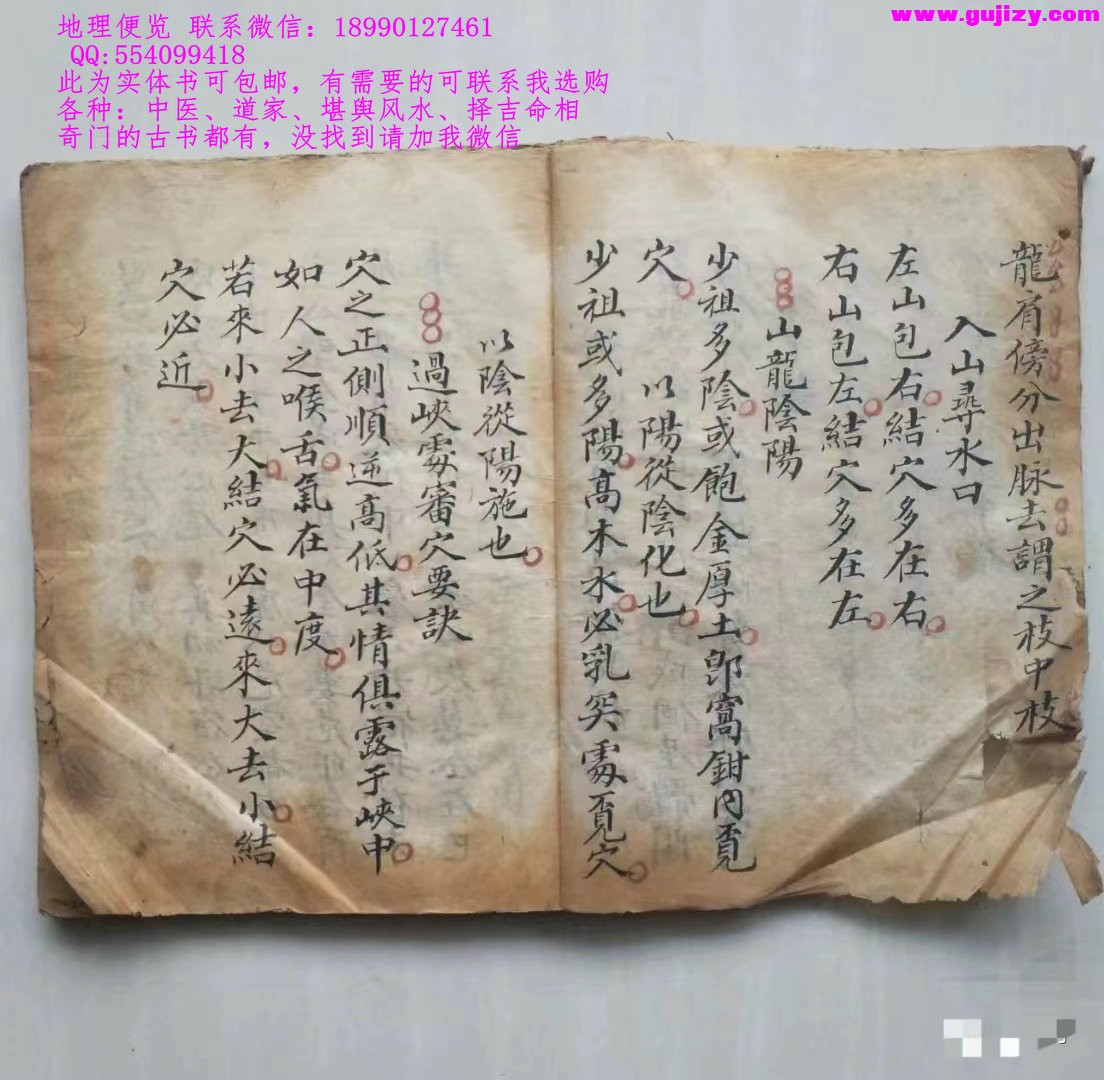 地理便览 联系微信：18990127461
QQ:554099418
此为实体书可包邮，有需要的可联系我选购
各种：中医、道家、堪舆风水、择吉命相
奇门的古书都有，没找到请加我微信
www.gujizy.com
龍肩傍分出脉去謂之枝中枝
入山尋水口
左山包右結穴多在右
右山包左結穴多在左
山龍陰陽
少祖多陰或飽金厚土郎窩鉗內覓
穴 以陽從陰化也
少祖或多陽高木水必乳突處覓穴
以陰從陽施也
過峽處審穴要訣
穴之正側順逆高低其情俱露于峽中
如人之喉舌氣在中度
若來小去大結穴必遠來大去小結
穴必近